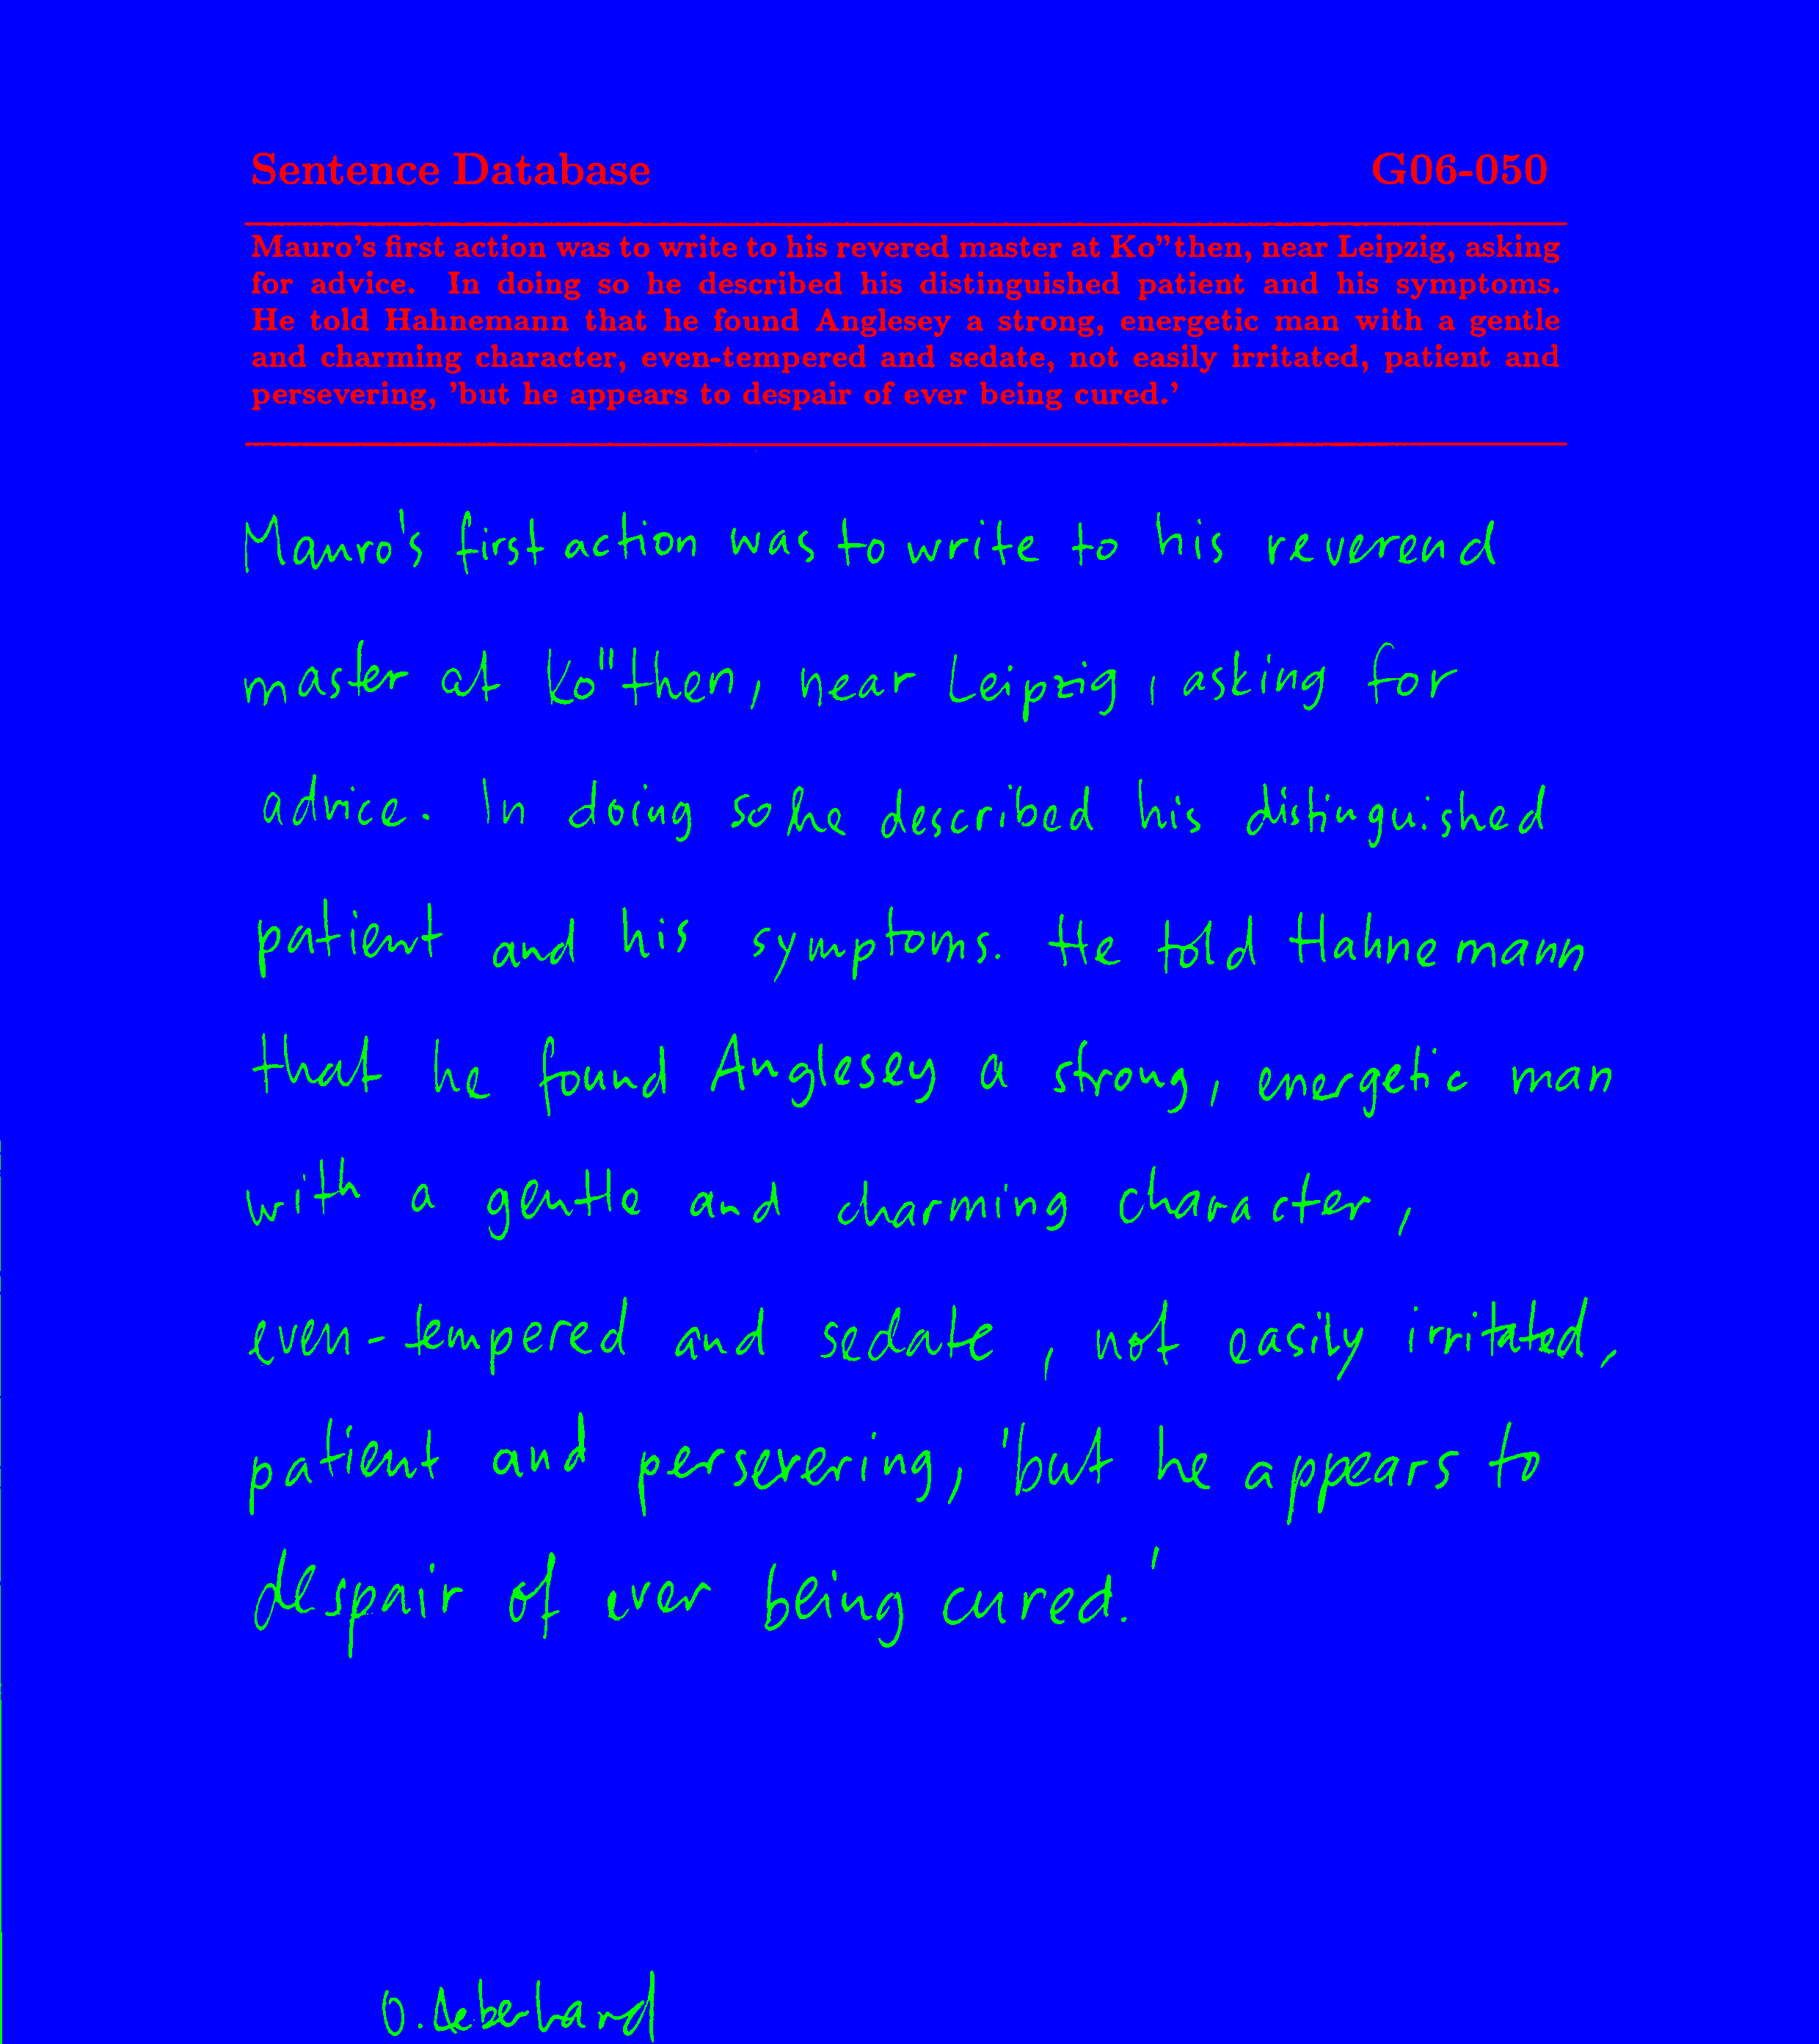 Sentence Database G06-050
Mauro's first action was to write to his revered master at Ko"then, near Leipzig, asking
for advice. In doing so he described his distinguished patient and his symptoms.
He told Hahnemann that he found Anglesey a strong, energetic man with a gentle
and charming character, even-tempered and sedate, not easily irritated, patient and
persevering, 'but he appears to despair of ever being cured.'
Mauro's first action was to write to his reverend
master at Ko"then, near Leipzig, asking for
advice. In doing so he described his distinguished
patient and his symptoms. He told Hahnemann
that he found Anglesey a strong, energetic man
with a gentle and charming character,
even-tempered and sedate, not easily irritated,
patient and persevering, 'but he appears to
despair of ever being cured.'
O. Aeberhard